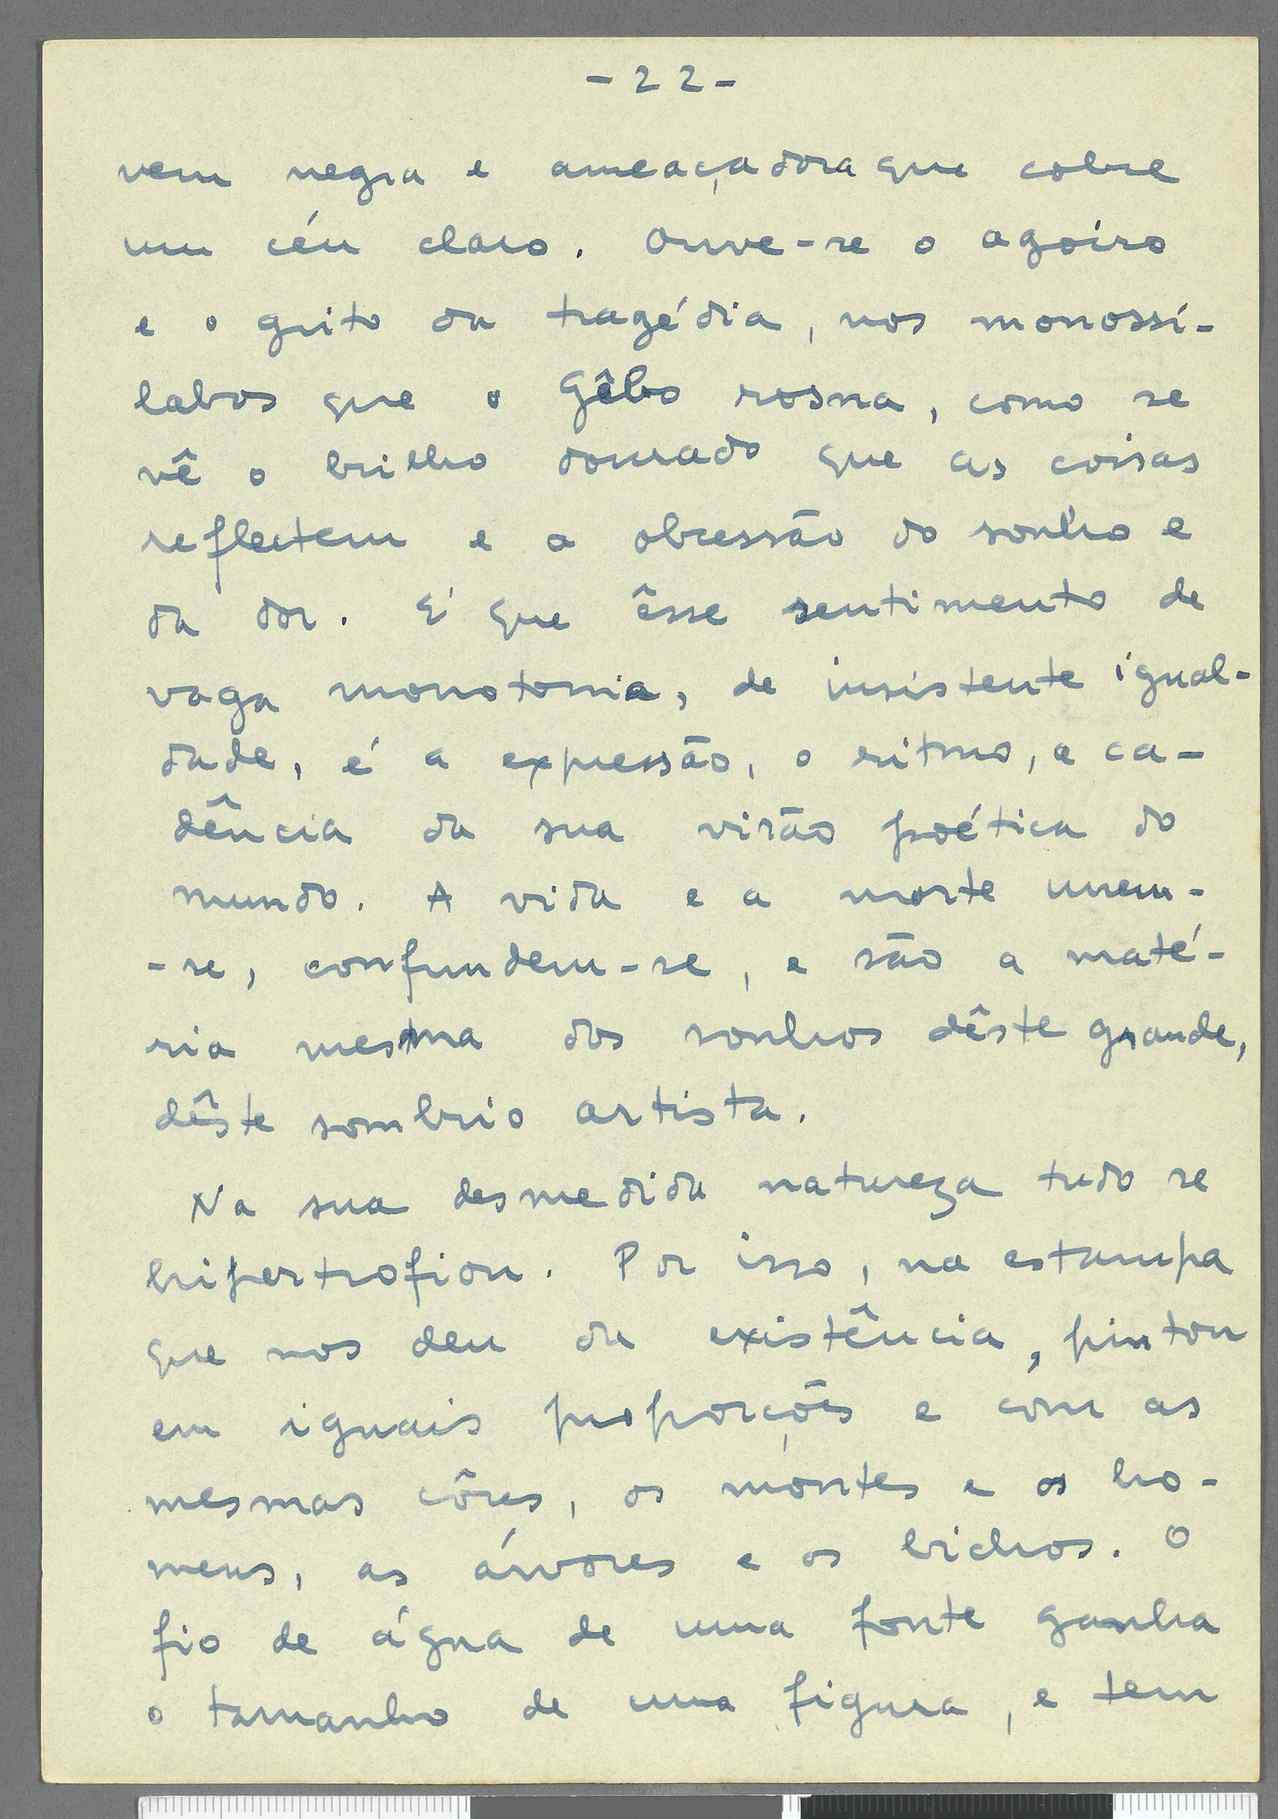 -22-
vem negra e ameaçadora que cobre
um céu claro. Ouve-se o agoiro
e o grito da tragédia, nos monossí-
labos que o Gêbo rosna, como se
vê o brilho doirado que as coisas
reflectem e a obsessão do sonho e
da dor. E' que êsse sentimento de
vaga monotonia, de insistente igual-
dade, é a expressão, o ritmo, a ca-
dência da sua visão poética do
mundo. A vida e a morte unem-
-se, confundem-se, e são a maté-
ria mesma dos sonhos dêste grande,
dêste sombrio artista.
Na sua desmedida natureza tudo se
hipertrofiou. Por isso, na estampa
que nos deu da existência, pintou
em iguais proporções e com as
mesmas côres, os montes e os ho-
mens, as árvores e os bichos. O
fio de água de uma fonte ganha
o tamanho de uma figura, e tem